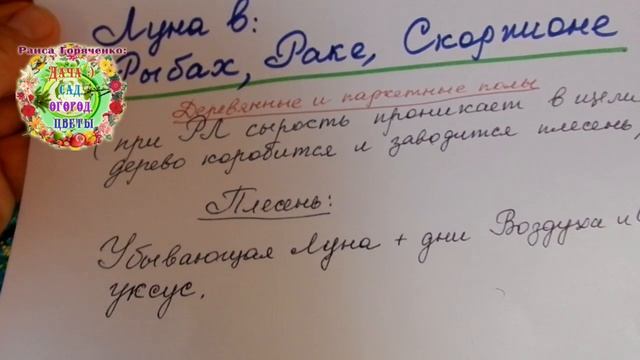 Раиса Горяченко:
ДАЧА:)
САД,
ОГОРОД,
ЦВЕТЫ
Луна в:
Рыбах, Раке, Скорпионе
Деревянные и паркетные полы
(при РЛ сырость проникает в щели
дерево коробится и заводится плесень,
Плесень:
Убывающая Луна + дни Воздуха и
уксус.